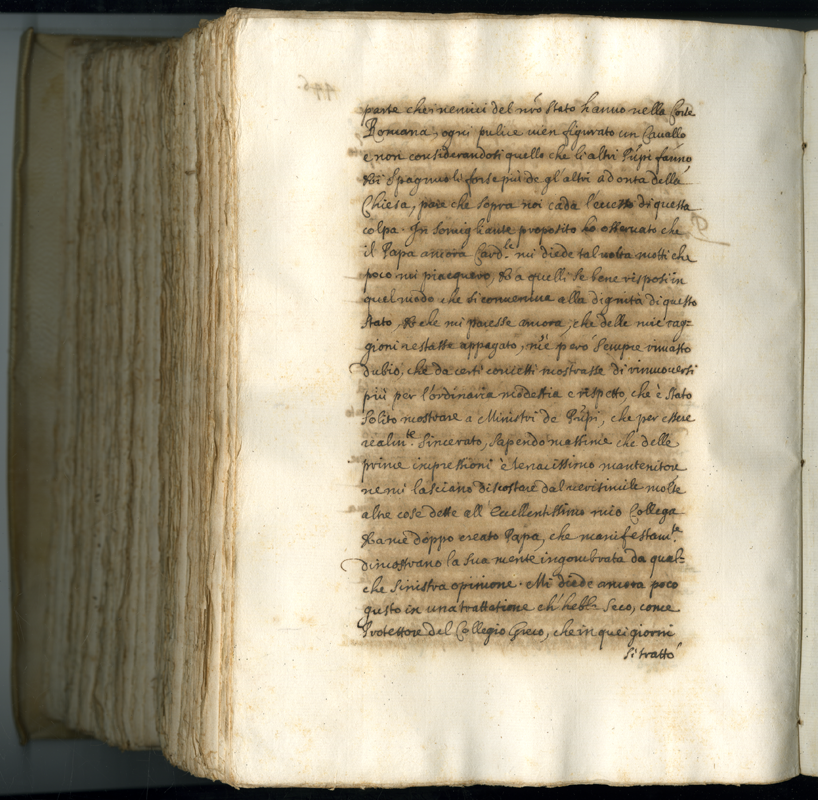 parte che i nemici del nr̃o stato hanno nella Corte
Romana, ogni pulice vien figurato un Cavallo
e non considerandosi quello che li altri Prῖpi fanno
&i Spagnuoli forse più de gl'altri ad onta della
Chiesa, pare che sopra noi cada l'eccesso di questa
colpa. In somigliante proposito ho osservato che
il Papa ancora Card.le mi diede tal volta motti che
poco mi piacquero, & a quelli se bene risposi in
quel modo che si conveniva alla dignità di questo
stato, & che mi paresse ancora, che delle mie rag=
gioni restasse appagato, m'è però sempre rimasto
dubio, che da certi concetti mostrasse di rimuoversi
più per l'ordinaria modestia e rispetto, che è stato
solito mostrare a Ministri de Prῖpi, che per essere
realm.te sincerato, sapendo massime che delle
prime impressioni è tenacissimo mantenitore
ne mi lasciano discostare dal verisimile molte
altre cose dette all Eccellentissimo mio Collega
& a me doppo creato Papa, che manifestam.te
dimostrano la sua mente ingombrata da qual=
che sinistra opinione. Mi diede ancora poco
gusto in una trattatione ch'hebbi seco, come
Protettore del Collegio Greco, che in quei giorni
si trattò